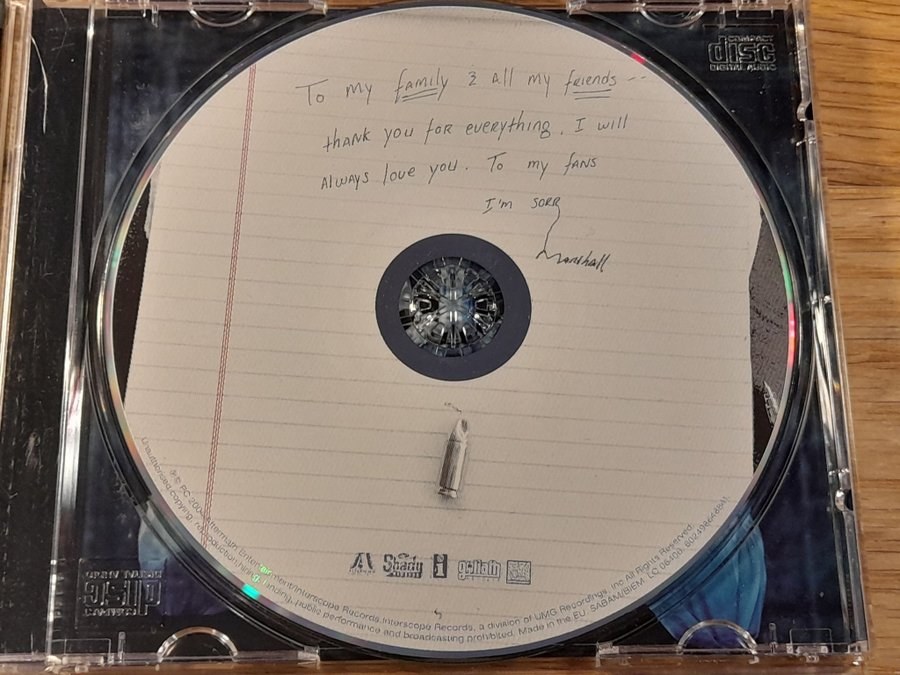 COMPACT
disc
DIGITAL AUDIO
To my family & all my friends --
thank you for everything. I will
Always love you. To my fans
I'm sorr
Marshall
Shady
RECORDS
goliath
Unauthorised copying, reproduction, hiring, lending, public performance and broadcasting prohibited. Made in the EU. SABAM/BIEM LC 06406.
Aftermath Entertainment/Interscope Records. Interscope Records, a division of UMG Recordings, Inc All Rights Reserved.